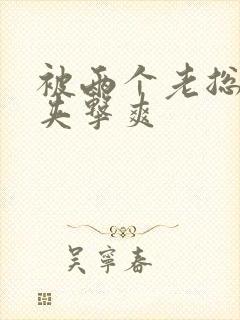 被两个老总
夹擊爽
吴寧春